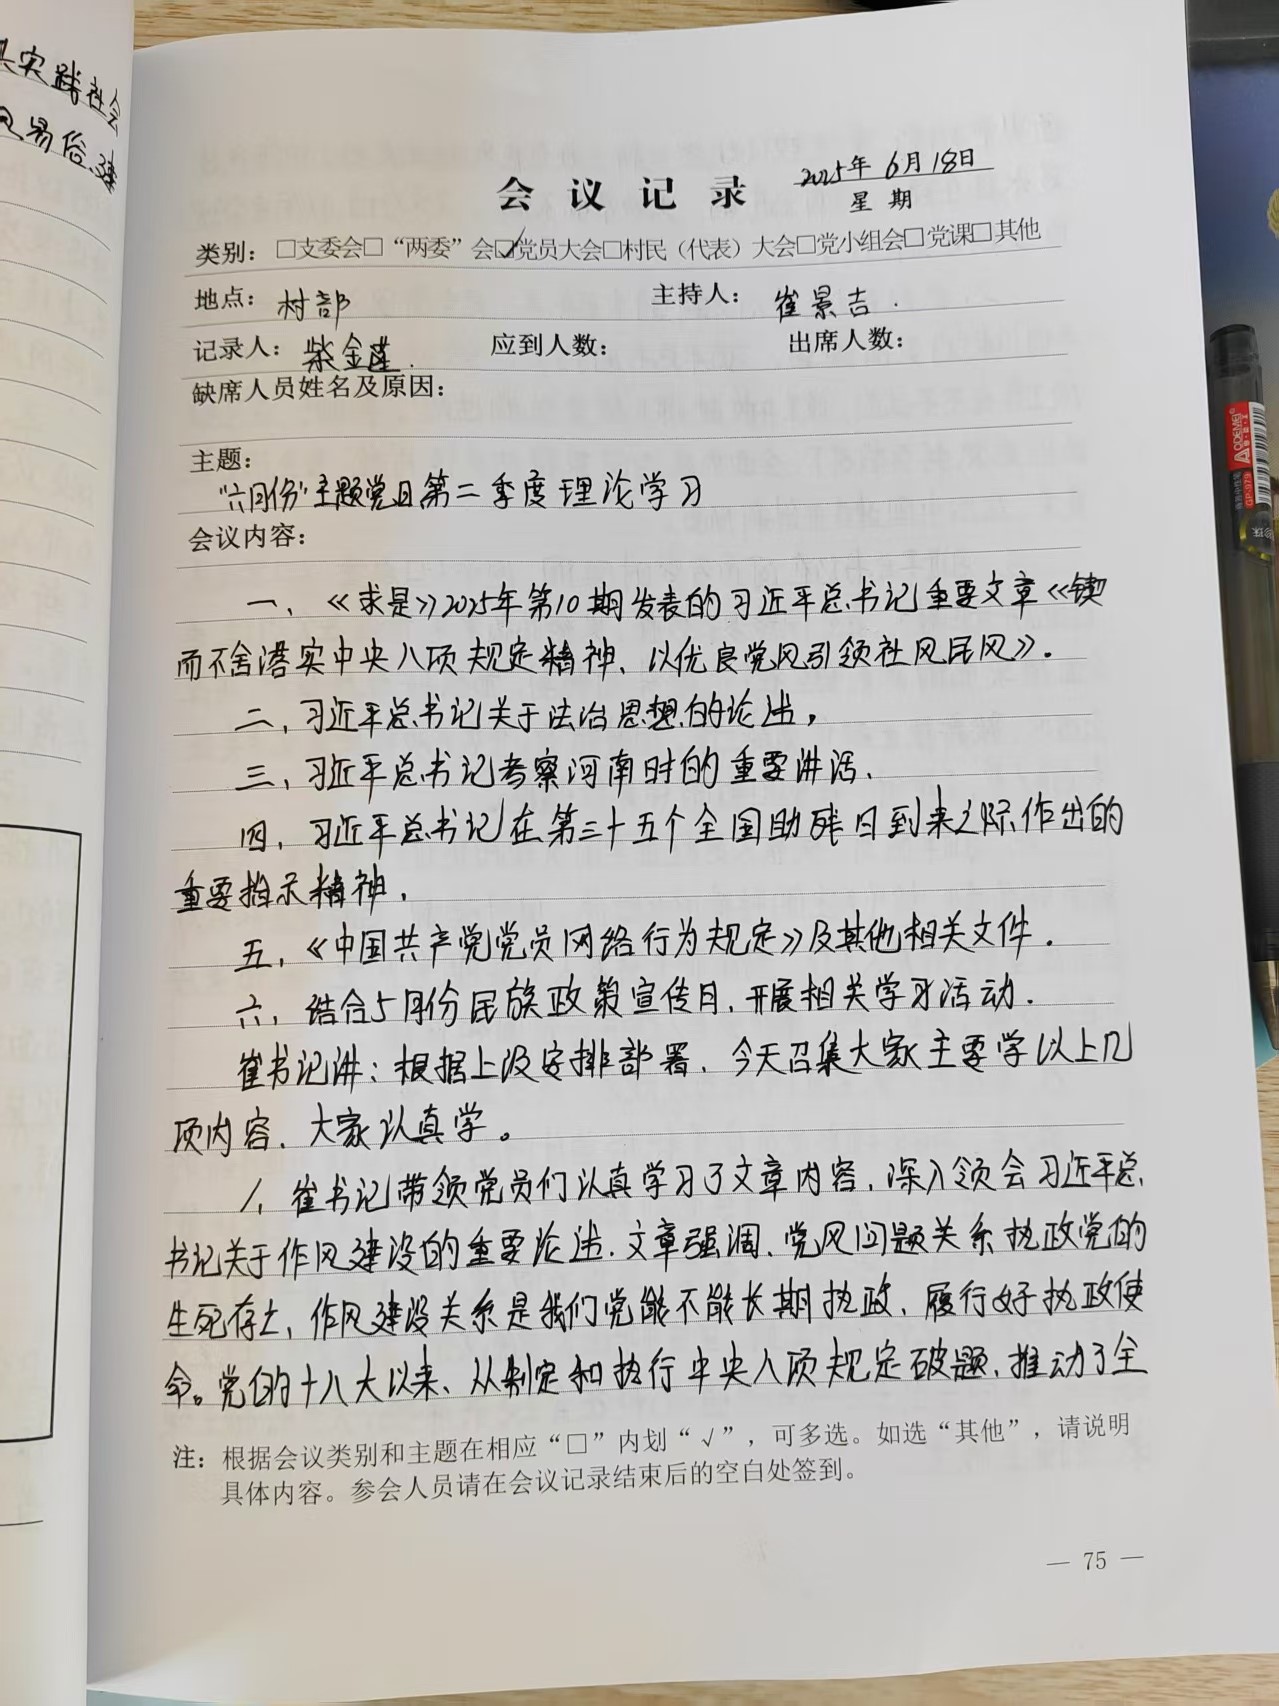 实践社会
易俗、建
会议记录
2025年6月18日
星期
类别：□支委会□“两委”会☑党员大会□村民（代表）大会□党小组会□党课□其他
地点：村部 主持人：崔景吉.
记录人：柴金莲. 应到人数： 出席人数：
缺席人员姓名及原因：
主题：
“六月份”主题党日第二季度理论学习
会议内容：
一、《求是》2025年第10期发表的习近平总书记重要文章《锲
而不舍落实中央八项规定精神、以优良党风引领社风民风》.
二，习近平总书记关于法治思想的论述，
三，习近平总书记考察河南时的重要讲话、
四，习近平总书记在第三十五个全国助残日到来之际作出的
重要指示精神，
五，《中国共产党党员网络行为规定》及其他相关文件.
六，结合5月份民族政策宣传月，开展相关学习活动.
崔书记讲：根据上级安排部署，今天召集大家主要学以上几
项内容，大家认真学。
1，崔书记带领党员们认真学习了文章内容，深入领会习近平总
书记关于作风建设的重要论述，文章强调，党风问题关系执政党的
生死存亡，作风建设关系是我们党能不能长期执政、履行好执政使
命。党的十八大以来、从制定和执行中央八项规定破题，推动了全
注：根据会议类别和主题在相应“□”内划“√”，可多选。如选“其他”，请说明
具体内容。参会人员请在会议记录结束后的空白处签到。
— 75 —
AODEMEI
GP-979